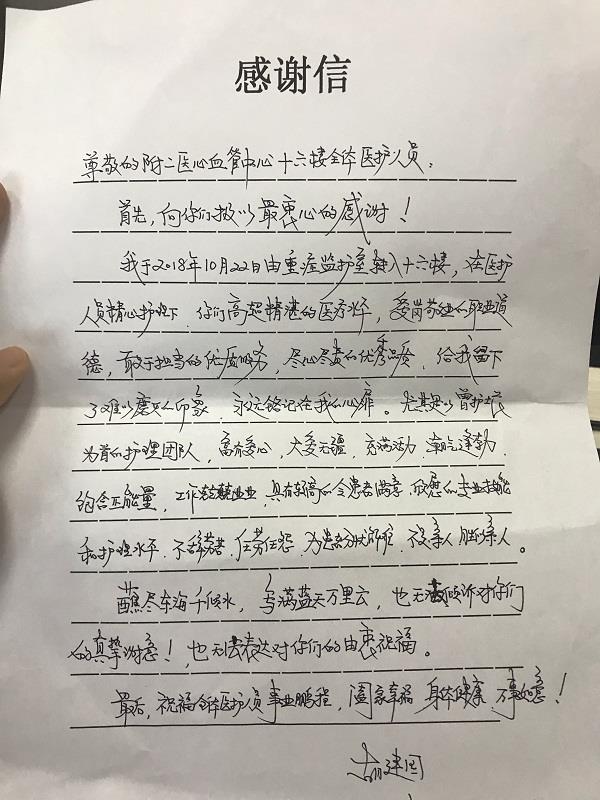 感谢信
尊敬的附二医心血管中心十六楼全体医护人员：
首先，向你们报以最衷心的感谢！
我于2018年10月22日由重症监护室转入十六楼，在医护
人员精心护理下，你们高超精湛的医疗水平，爱岗敬业的职业道
德，敢于担当的优质服务，尽心尽责的优秀品质，给我留下
了难以磨灭的印象，永远铭记在我的心扉。尤其是以曾护士长
为首的护理团队，富有爱心，大爱无疆，充满活力，朝气蓬勃，
饱含正能量，工作兢兢业业，具有较高的令患者满意、欣慰的专业技能
和护理水平，不辞劳苦，任劳任怨，为患者分忧解难，不是亲人胜似亲人。
蘸尽东海千倾水，写满蓝天万里云，也无法倾诉对你们
的真挚谢意！也无法表达对你们的由衷祝福。
最后，祝福全体医护人员事业鹏程，阖家幸福，身体健康，万事如意！
建国